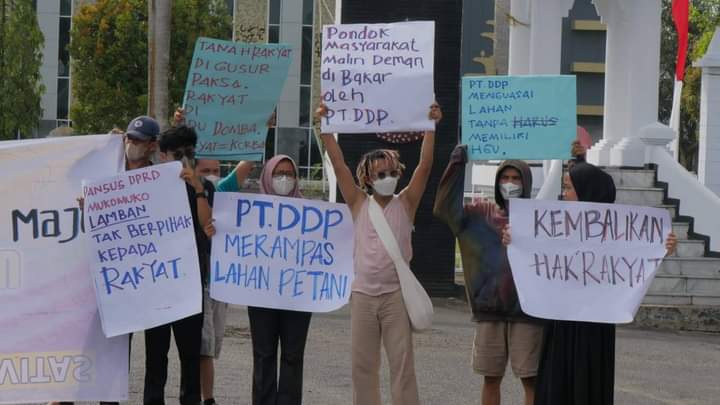 TANAH RAKYAT
DI GUSUR
PAKSA.
RAKYAT
DI
DU DOMBA.
KORBA
Pondok
Masyarakat
Malin Deman
di Bakar
oleh
PT.DDP.
PT. DDP
MENGUASAI
LAHAN
TANPA HARUS
MEMILIKI
HGU.
Maju
VITAS
PANSUS DPRD
MUKOMUKO
LAMBAN
TAK BERPIHAK
KEPADA
RAKYAT.
PT.DDP
MERAMPAS
LAHAN PETANI
KEMBALIKAN
HAK RAKYAT